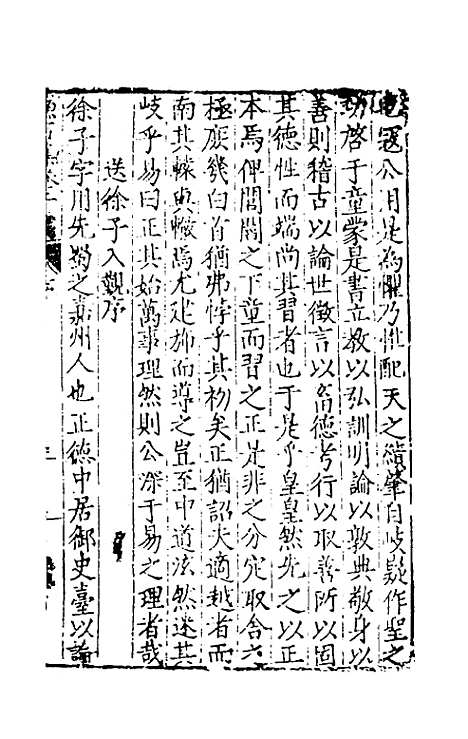 寇公用是為懼乃性配天之績肇自岐嶷作聖之
功啓于童蒙是書立教以弘訓明論以敦典敬身以
善則稽古以論世徵言以畜德考行以取善所以固
其德性而端尚其習者也于是乎皇皇然先之以正
本焉俾閭閻之下童而習之正是非之分定取舍六
極庶幾白首猶弗悖乎其初矣正猶詔夫適越者而
南其轅與轍焉尤建旆而導之豈至中道泫然迷其
岐乎易曰正其始萬事理然則公深于易之理者哉
送徐子入觀序
徐子字用先蜀之嘉州人也正德中居御史臺以論